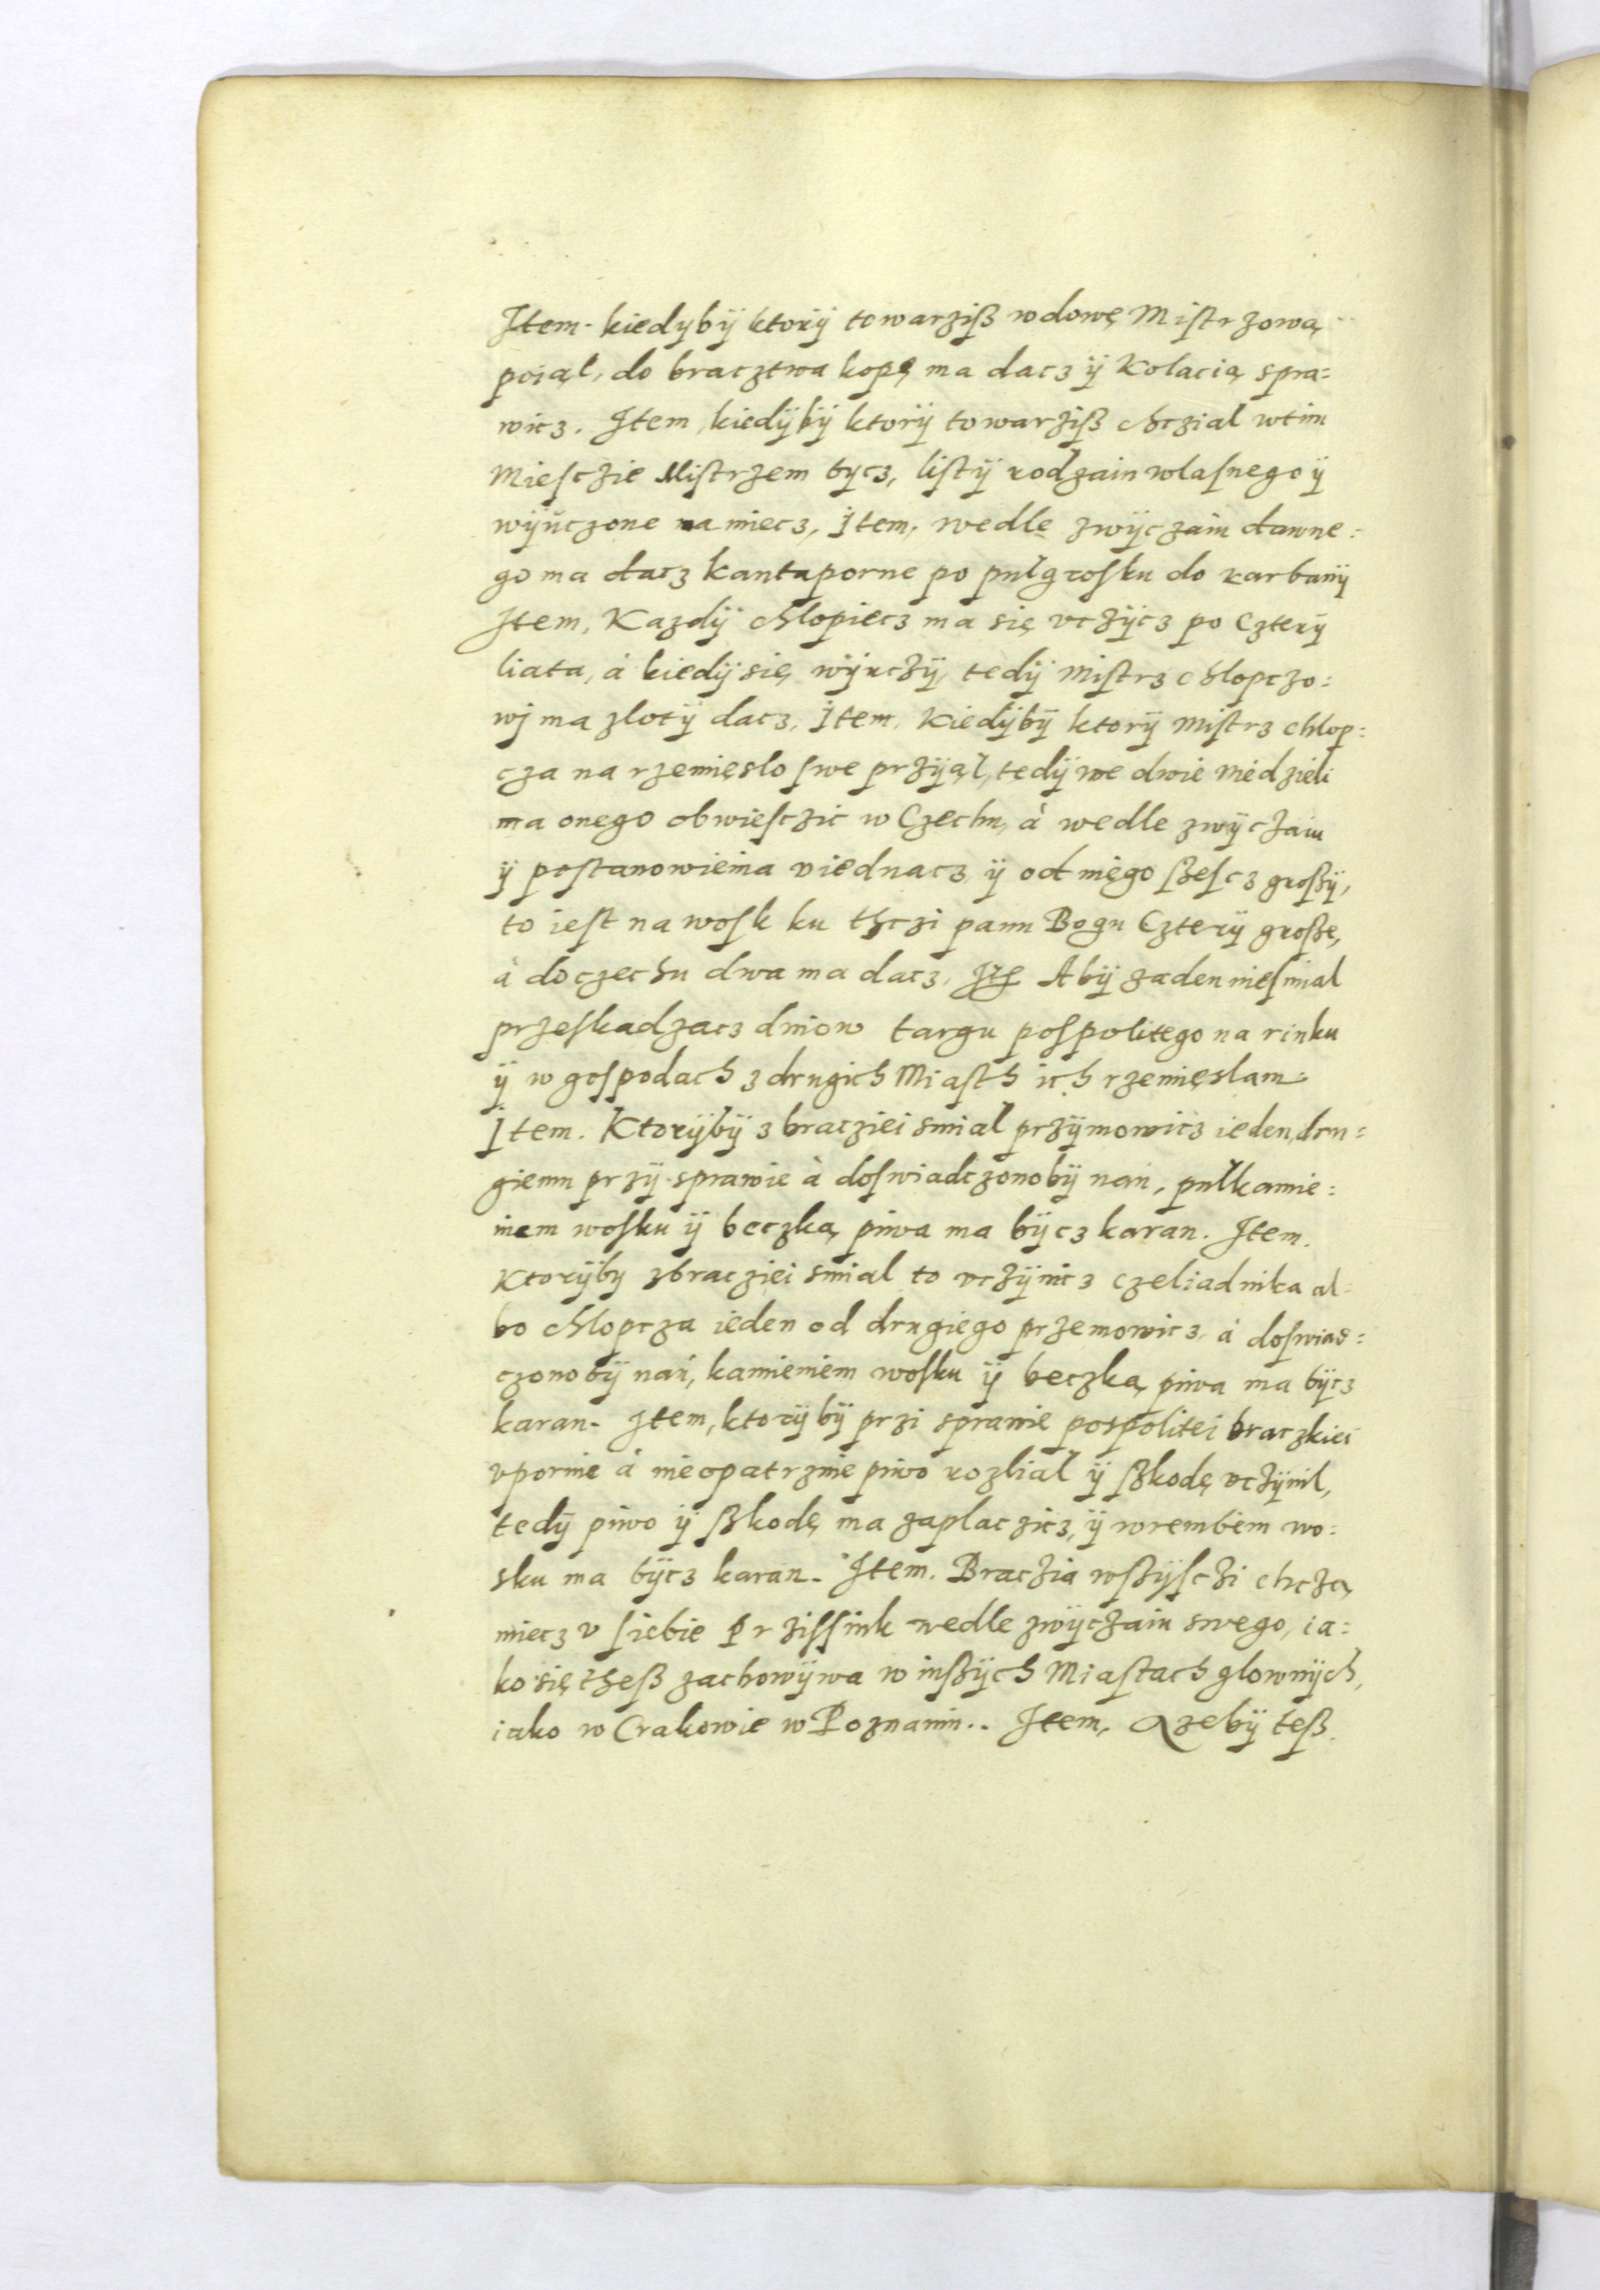 Item. kiedybÿ ktorÿ towarziß wdowę Mistrzową
poiąl, do bracztwa kopę ma dacz ÿ Kolacią spra=
wicz. Item, kiedÿbÿ ktorÿ towarziß chczial wtim
Miesczie Mistrzem bycz, listÿ rodzaiu wlasnego ÿ
wÿuczone ma miecz, Item, wedle zwÿczaiu dawne=
go ma dacz kantaporne po pulgrosku do karbanÿ
Item, Kazdÿ chlopiecz ma się vczÿcz po Czterÿ
liata, à kiedÿ się wÿuczÿ, tedÿ Mistrz chlopczo=
wj ma zlotÿ dacz, Item, Kiedÿbÿ ktorÿ Mistrz chlop=
cza na rzemięslo swe przÿiąl, tedÿ we dwie niedzieli
ma onego obwiesczic w Czechu, à wedle zwÿczaiu
ÿ postanowienia viednacz, ÿ od niego szescz groszÿ,
to iest na wosk ku thczi panu Bogu Czterÿ große,
à do czechu dwa ma dacz, Ite Abÿ zaden niesmial
przeskadzacz dniow targu pospolitego na rinku
ÿ w gospodach z drugich Miasth ich rzemięslam:
Item. Ktorÿbÿ z bracziei smial przÿmowicz ieden, dru=
giemu przÿ sprawie à doswiadczonobÿ nań, pulkamie=
niem wosku ÿ beczką piwa ma bÿcz karan. Item.
Ktorÿby zbracziei smial to vczÿnicz czeliadnika al=
bo chlopcza ieden od drugiego przemowicz, à doswiad=
czonobÿ nań, kamieniem wosku ÿ beczką piwa ma bÿcz
karan. Item, ktorÿbÿ przi sprawie pospolitei braczkiei
vpornie à nieopatrznie piwo rozlial ÿ szkodę vczÿnil,
tedÿ piwo ÿ szkodę ma zaplaczicz, ÿ wrembem wo=
sku ma bÿcz karan. Item. Braczia wszÿsczi chczą
miecz v siebie przissink wedle zwÿczaiu swego, ia=
ko się theß zachowÿwa w inszÿch Miastach glownÿch,
iako w Crakowie w Poznaniu.. Item, Azebÿ teß.